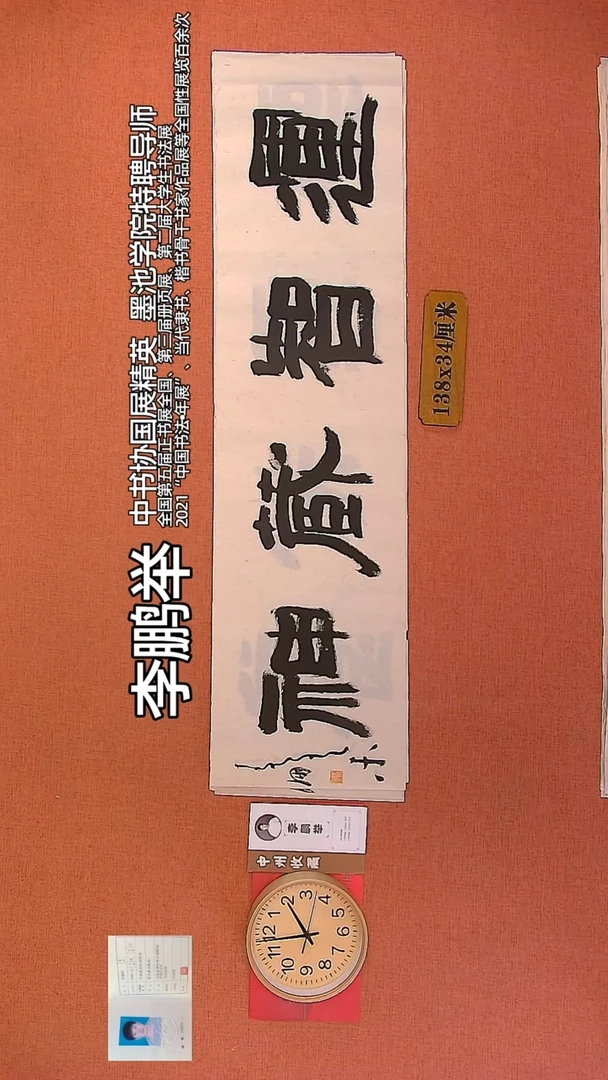 李鹏举
中书协国展精英 墨池学院特聘导师
全国第五届正书展全国、第三届册页展、第二届大学生书法展
2021“中国书法·年展”、当代隶书、楷书骨干书家作品展等全国性展览百余次
運智藏神
138x34厘米
李鹏举
中州收藏
12
1
2
3
4
5
6
7
8
9
10
11